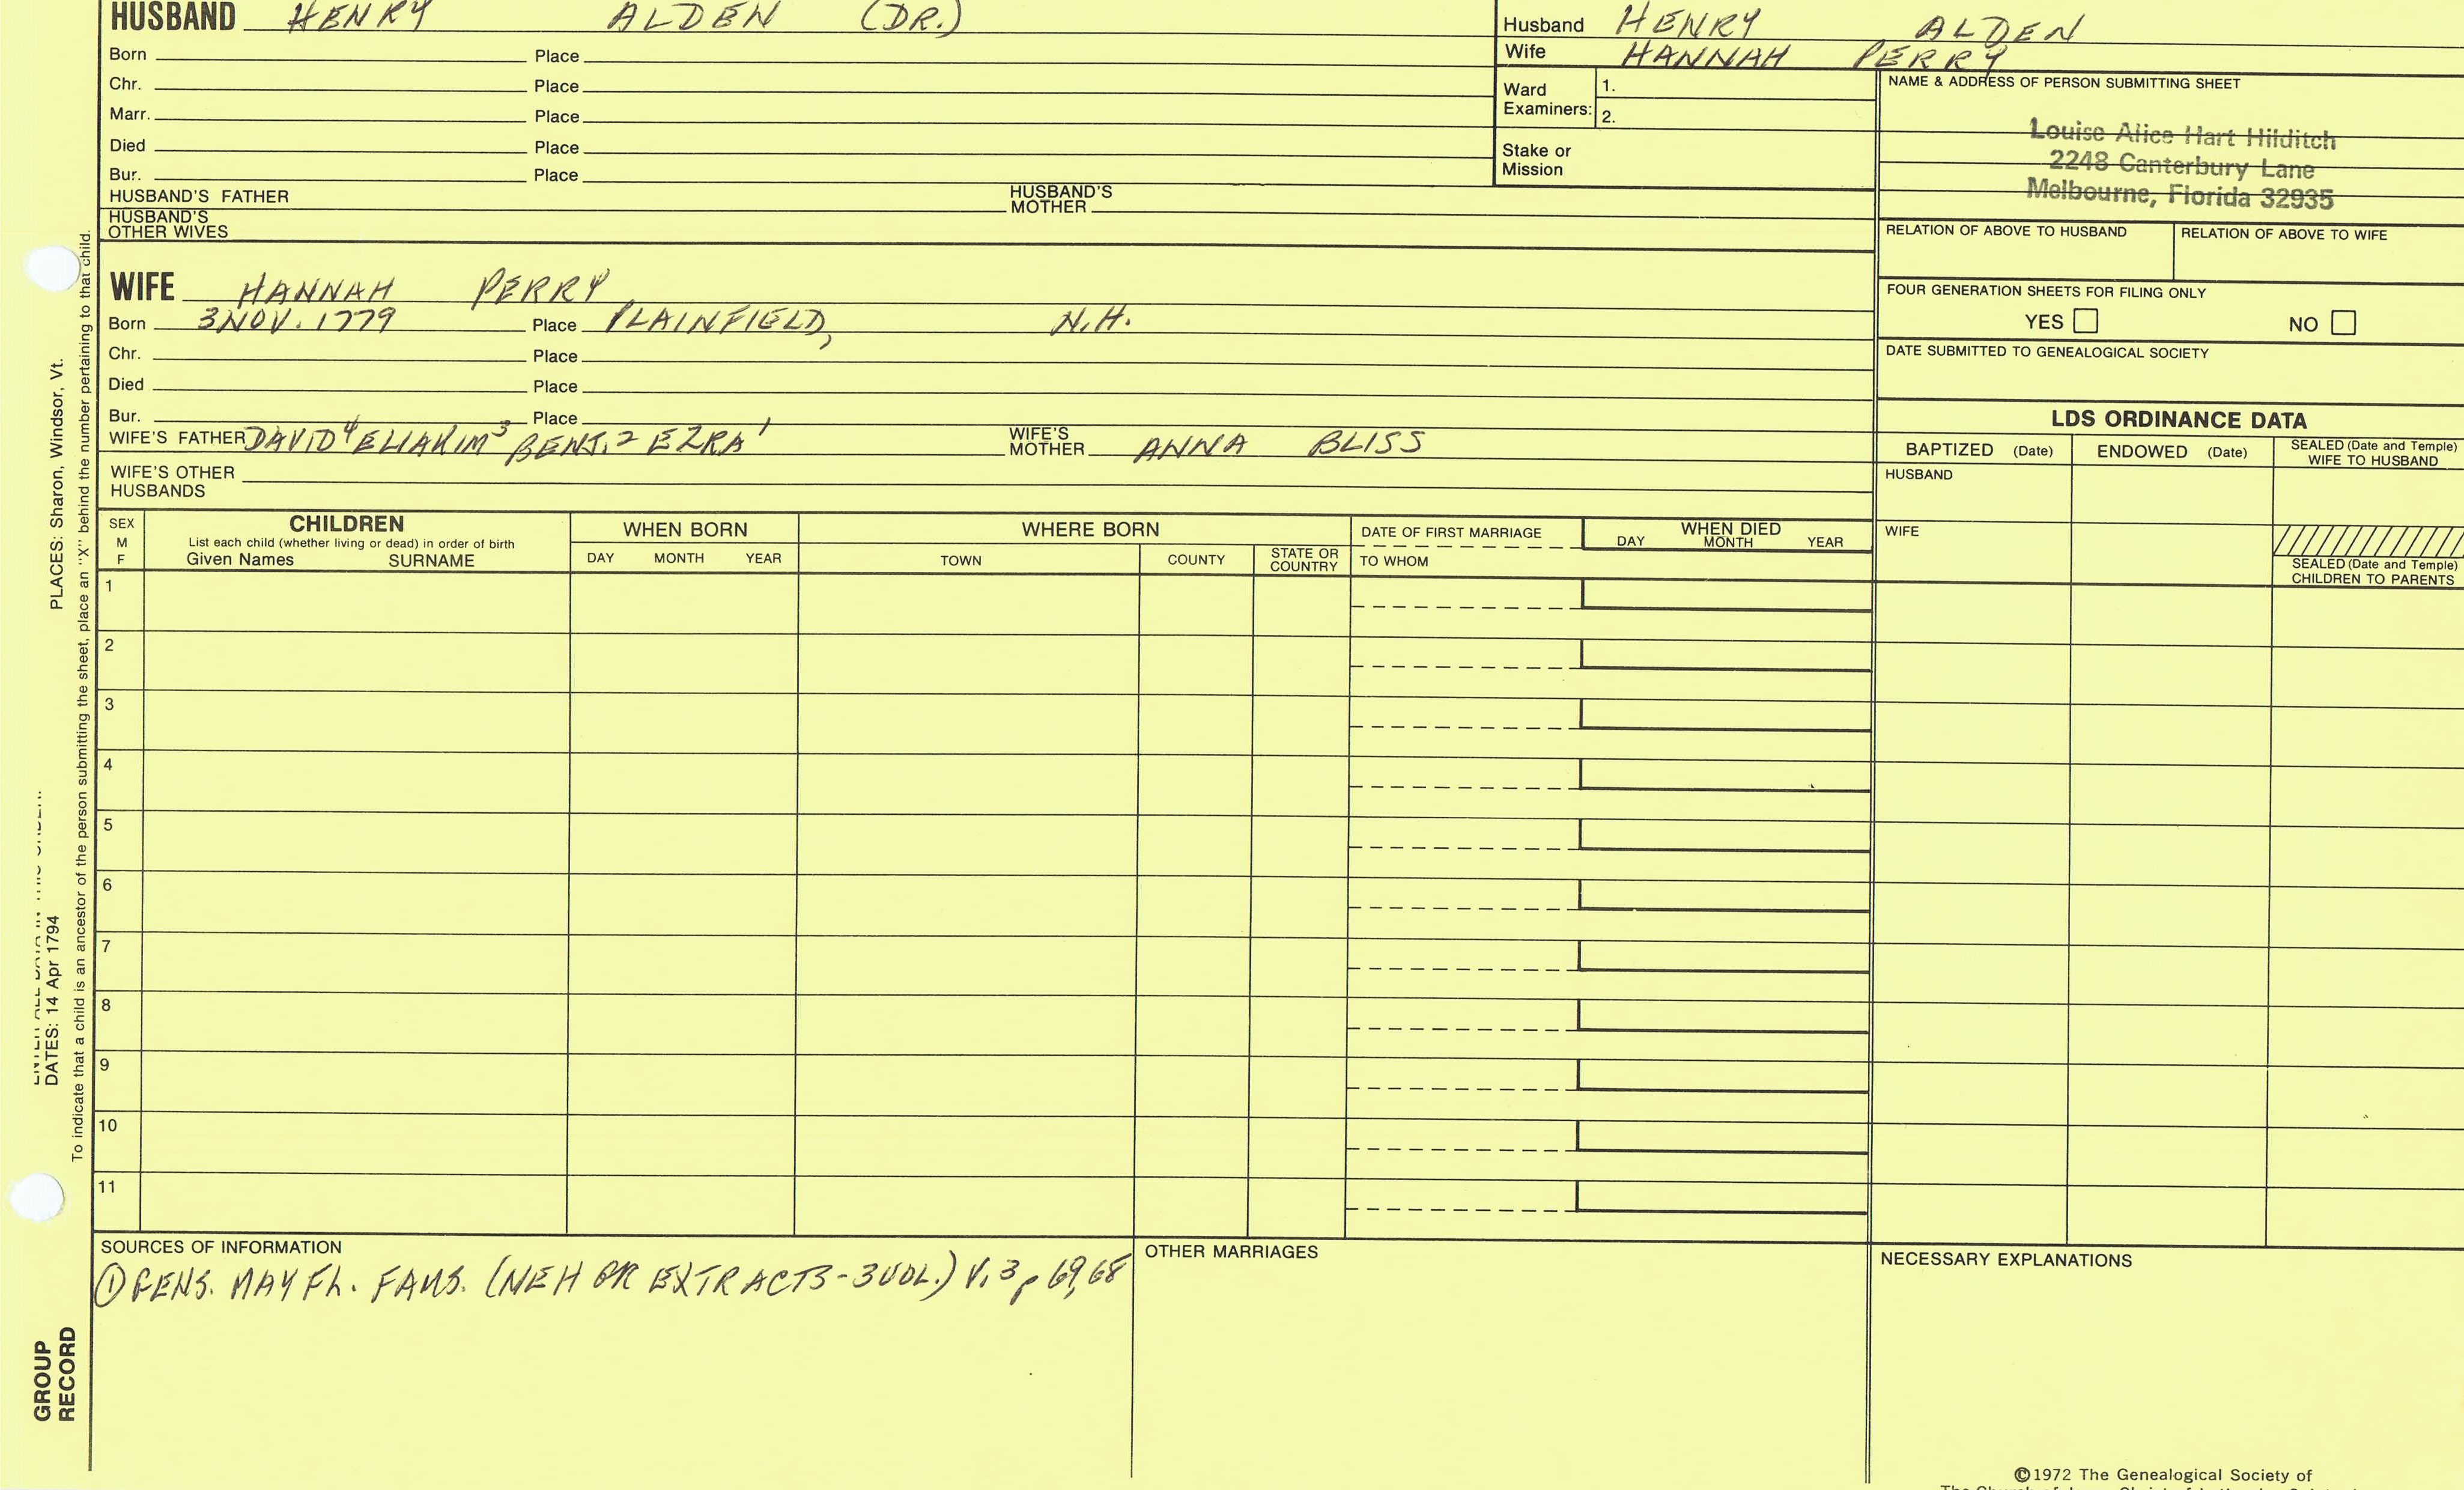 HUSBAND HENRY ALDEN (DR.)
Born Place
Chr. Place
Marr. Place
Died Place
Bur. Place
HUSBAND'S FATHER HUSBAND'S MOTHER
HUSBAND'S OTHER WIVES
Husband HENRY ALDEN
Wife HANNAH PERRY
Ward Examiners: 1.
2.
Stake or Mission
NAME & ADDRESS OF PERSON SUBMITTING SHEET
Louise Alice Hart Hilditch
2248 Canterbury Lane
Melbourne, Florida 32935
RELATION OF ABOVE TO HUSBAND RELATION OF ABOVE TO WIFE
FOUR GENERATION SHEETS FOR FILING ONLY
YES NO
DATE SUBMITTED TO GENEALOGICAL SOCIETY
WIFE HANNAH PERRY
Born 3 NOV. 1779 Place PLAINFIELD, N.H.
Chr. Place
Died Place
Bur. Place
WIFE'S FATHER DAVID⁴ ELIAKIM³ BENJ.² EZRA¹ WIFE'S MOTHER ANNA BLISS
WIFE'S OTHER HUSBANDS
LDS ORDINANCE DATA
BAPTIZED (Date) ENDOWED (Date) SEALED (Date and Temple) WIFE TO HUSBAND
HUSBAND
WIFE
SEALED (Date and Temple) CHILDREN TO PARENTS
SEX M F
CHILDREN
List each child (whether living or dead) in order of birth
Given Names SURNAME
WHEN BORN
DAY MONTH YEAR
WHERE BORN
TOWN COUNTY STATE OR COUNTRY
DATE OF FIRST MARRIAGE
TO WHOM
WHEN DIED
DAY MONTH YEAR
1
2
3
4
5
6
7
8
9
10
11
SOURCES OF INFORMATION
① GENS. MAYFL. FAMS. (NEH GR EXTRACTS-3VOL.) V.3 p 69,68
OTHER MARRIAGES
NECESSARY EXPLANATIONS
©1972 The Genealogical Society of
PLACES: Sharon, Windsor, Vt.
DATES: 14 Apr 1794
To indicate that a child is an ancestor of the person submitting the sheet, place an "X" behind the number pertaining to that child.
GROUP
RECORD